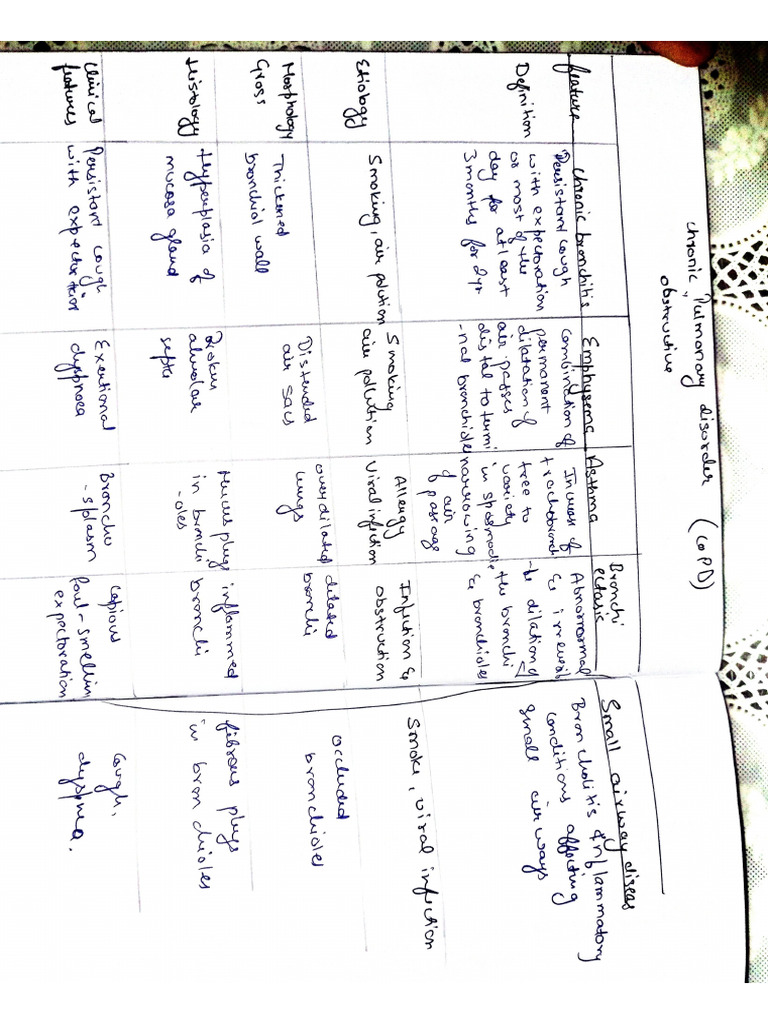 chronic Pulmonary disorder (COPD)
obstructive
feature
chronic bronchitis
Emphysema
Asthma
Bronchi
ectasis
Small airway diseas
Definition
Persistant cough
with expectoration
or most of the
day for atleast
3 months for 2yr
combination of
permanant
dilatation of
air passes
distal to termi
-nal bronchioles
Increase of
tracheobronch
tree to
variety
in spasmodic
narrowing
of air
passage
Abnormormal
& irreversib
-le dilation of
the bronchi
& bronchioles
Broncholitis & inflammatory
conditions affecting
small airways
Etiology
Smoking, air pollution
Smoking
air pollution
Allergy
Viral infection
Infection &
obstruction
Smoke, viral infection
Morphology
Gross
Thickened
bronchial wall
Distended
air sacs
overdilated
lungs
dilated
bronchi
occluded
bronchioles
Histology
Hyperplasia of
mucosa gland
Broken
alveolar
septe
Mucus plugs
in bronchi
-oles
inflammed
bronchi
fibrous plugs
in bronchioles
Clinical
features
Persistant cough
with expectoration
Exertional
dyspnoea
Broncho
-splasm
copious
foul-smellin
expectoration
Cough,
dyspnea.